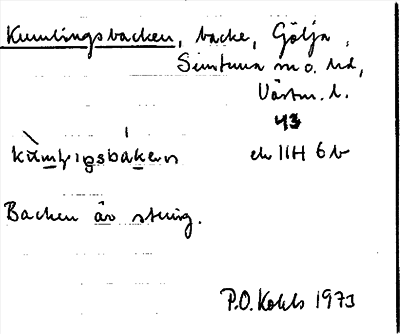 Kumlingsbacken, backe, Gölja,
Simtuna sn o. hd,
Västm. l.
43
ek 11H 6b
Backen är stenig.
P.O. Kohls 1973